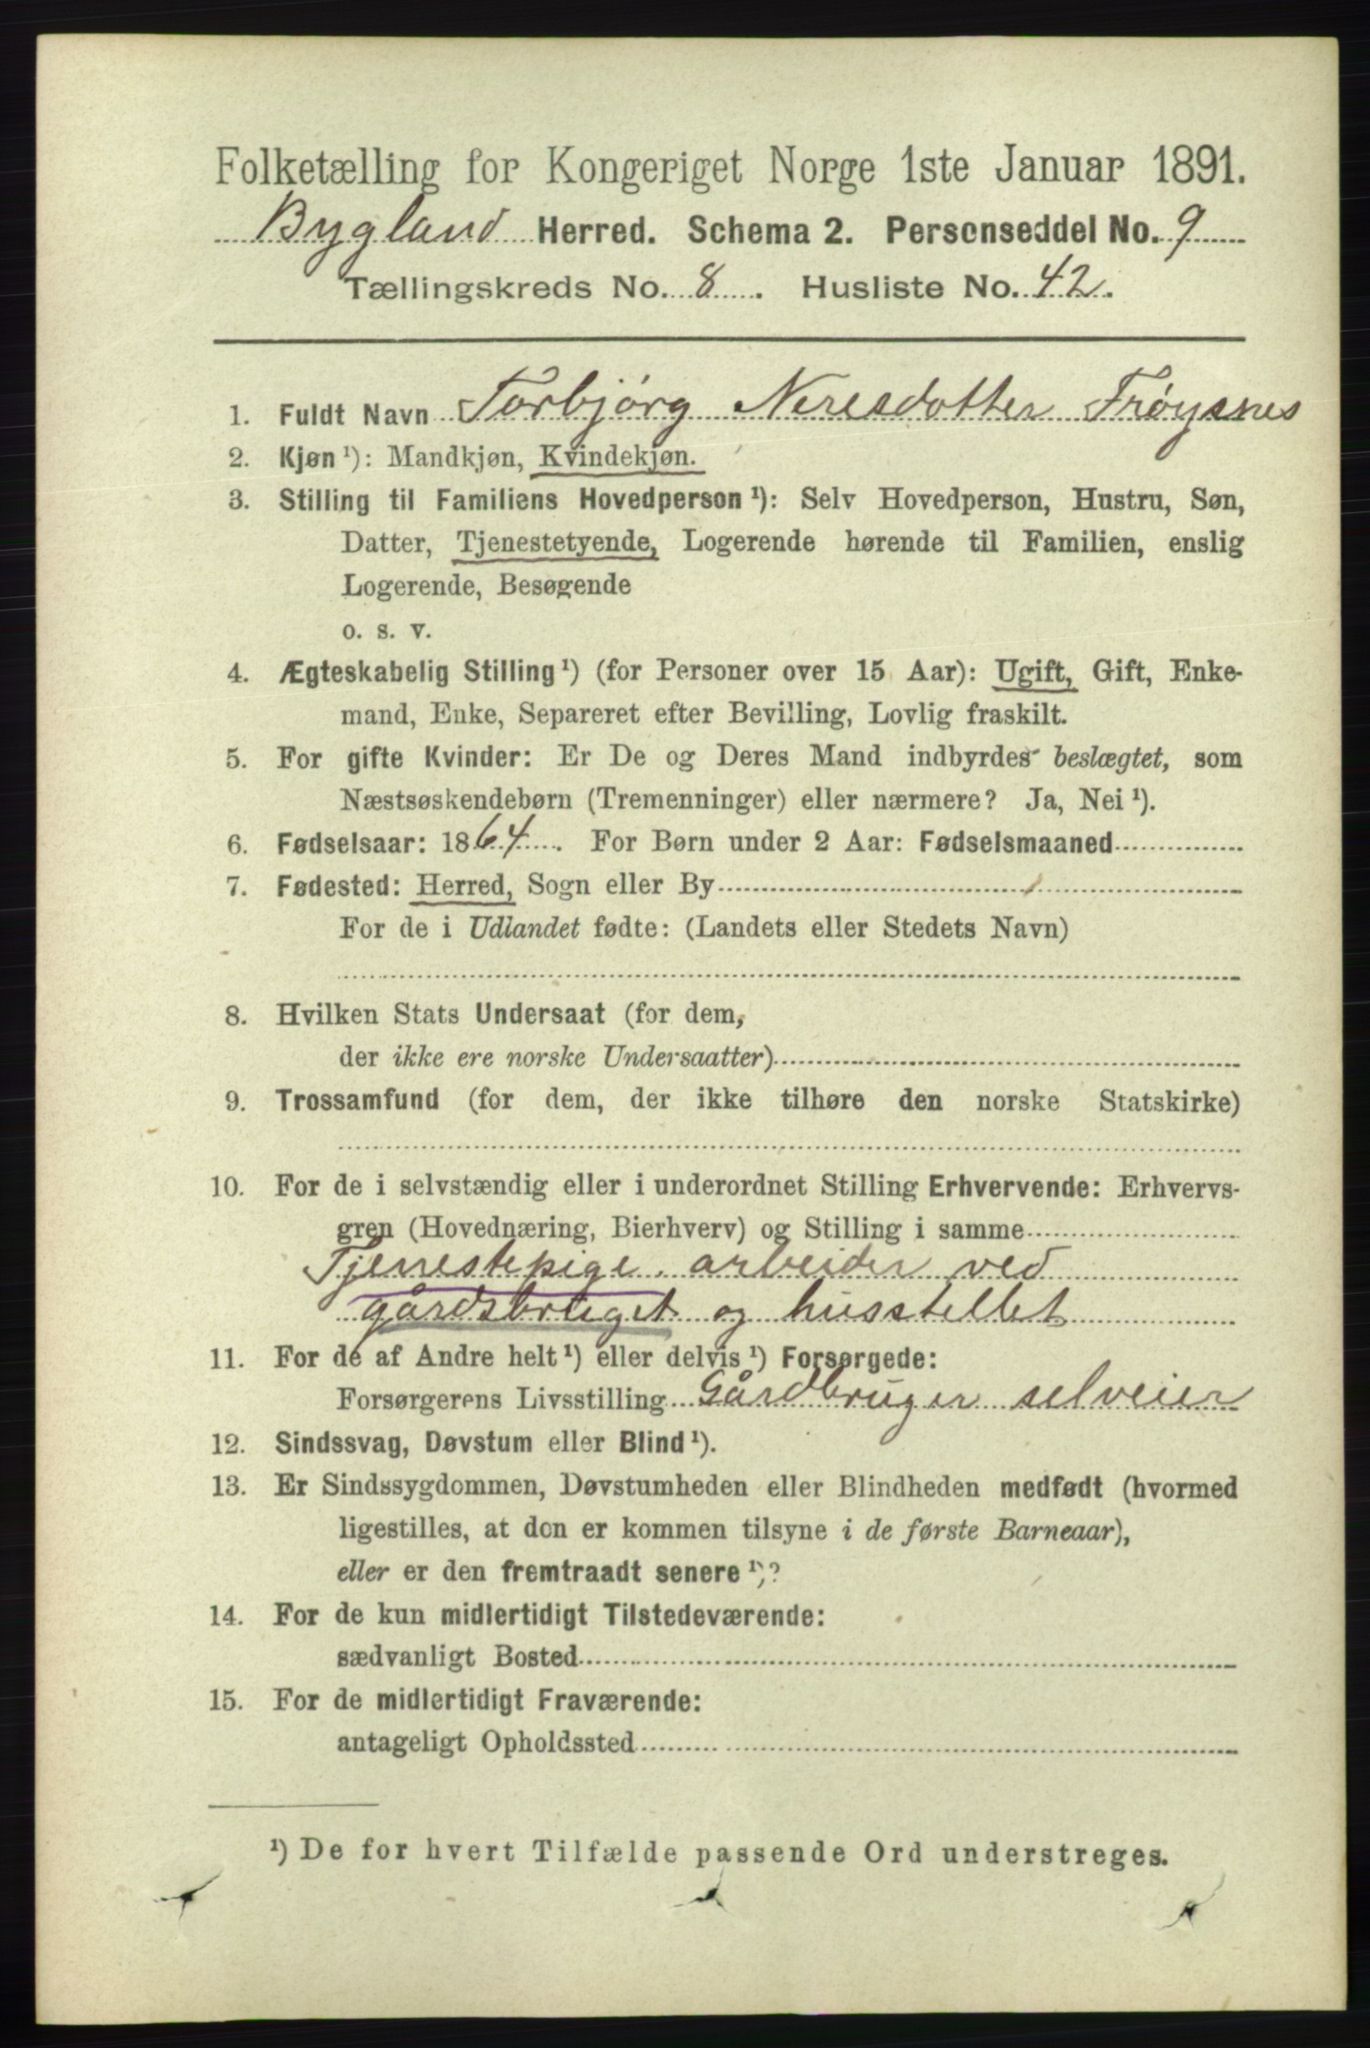 Folketælling for Kongeriget Norge 1ste Januar 1891.
Bygland Herred. Schema 2. Personseddel No. 9
Tællingskreds No. 8. Husliste No. 42.
1. Fuldt Navn Torbjørg Neresdotter Frøysnes
2. Kjøn ¹): Mandkjøn, Kvindekjøn.
3. Stilling til Familiens Hovedperson ¹): Selv Hovedperson, Hustru, Søn,
Datter, Tjenestetyende, Logerende hørende til Familien, enslig
Logerende, Besøgende
o. s. v.
4. Ægteskabelig Stilling ¹) (for Personer over 15 Aar): Ugift, Gift, Enke-
mand, Enke, Separeret efter Bevilling, Lovlig fraskilt.
5. For gifte Kvinder: Er De og Deres Mand indbyrdes beslægtet, som
Næstsøskendebørn (Tremenninger) eller nærmere? Ja, Nei ¹).
6. Fødselsaar: 1864. For Børn under 2 Aar: Fødselsmaaned
7. Fødested: Herred, Sogn eller By
For de i Udlandet fødte: (Landets eller Stedets Navn)
8. Hvilken Stats Undersaat (for dem,
der ikke ere norske Undersaatter)
9. Trossamfund (for dem, der ikke tilhøre den norske Statskirke)
10. For de i selvstændig eller i underordnet Stilling Erhvervende: Erhvervs-
gren (Hovednæring, Bierhverv) og Stilling i samme
Tjenestepige. arbeider ved
gårdsbruget og husstellet
11. For de af Andre helt ¹) eller delvis ¹) Forsørgede:
Forsørgerens Livsstilling Gårdbruger selveier
12. Sindssvag, Døvstum eller Blind ¹).
13. Er Sindssygdommen, Døvstumheden eller Blindheden medfødt (hvormed
ligestilles, at den er kommen tilsyne i de første Barneaar),
eller er den fremtraadt senere ¹)?
14. For de kun midlertidigt Tilstedeværende:
sædvanligt Bosted
15. For de midlertidigt Fraværende:
antageligt Opholdssted
¹) De for hvert Tilfælde passende Ord understreges.